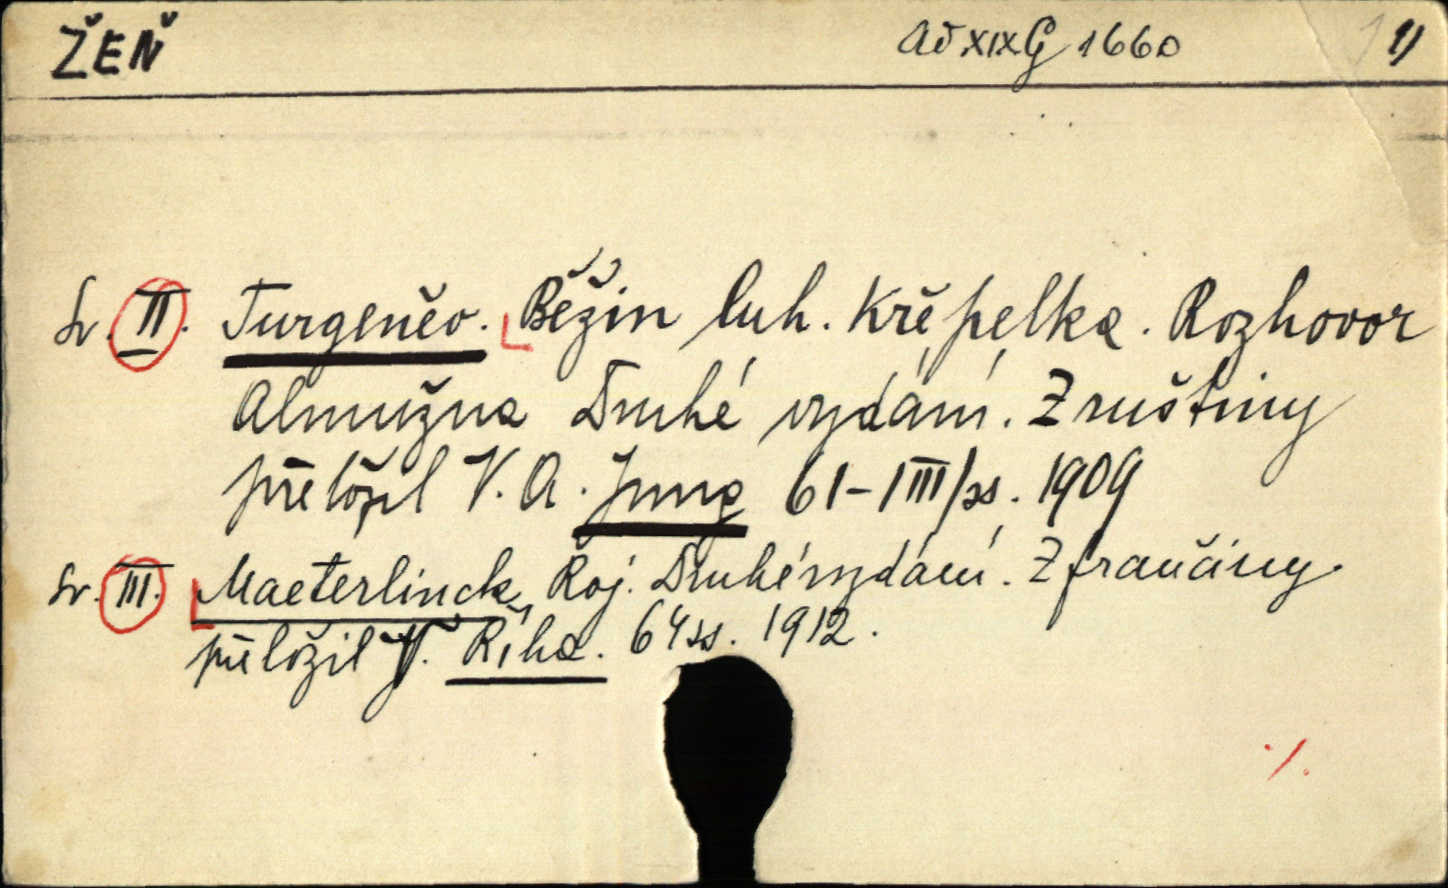 ŽEŇ Ad XIX G 1660 1)
Sv. II. Turgeněv. Běžin luh. Křepelka. Rozhovor
Almužna Druhé vydání. Z ruštiny
přeložil V. A. Jung 61-1III/ss. 1909
Sv. III. Maeterlinck Roj. Druhé vydání. Z franččiny
přeložil V. Říha. 64ss. 1912.
./.